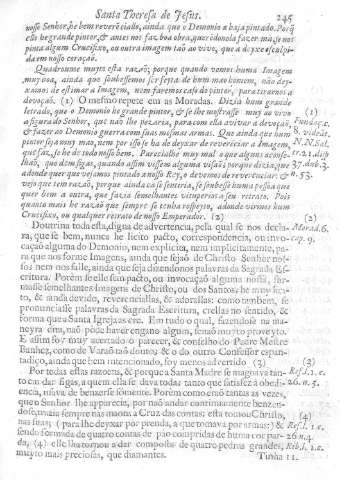 Santa Theresa de Jesus. 245
nosso Senhor, he bem reverẽcialla, ainda que o Demonio a haja pintado. Porq̃
elle he grande pintor, & antes nos faz boa obra, querẽdonola fazer má, se nos
pinta algum Crucifixo, ou outra imagem tão ao vivo, que a deyxe esculpi-
da em nosso coração.
Quadroume muyto esta razão; porque quando vemos huma Imagem
muy boa, ainda que soubessemos ser feyta de hum mao homem, não dey-
xamos de estimar a Imagem, nem faremos caso do pintor, para tirarnos a
devoção. (1) O mesmo repete em as Moradas. Dizia hum grande
letrado, que o Demonio he grande pintor, & se lhe mostrasse muy ao vivo
a figura do Senhor, que não lhe pezaria, para com ella avivar a devoção,
& fazer ao Demonio guerra com suas mesmas armas. Que ainda que hum
pintor seja muy mao, nem por isso se ha de deyxar de reverẽciar a Imagem,
que faz, se he de todo nosso bem. Parecialhe muy mal o que alguns aconse-
lhão, que dem figas, quando assim vissem alguma visão; porque dizia, que
donde quer que vejamos pintado a nosso Rey, o devemos de reverenciar: &
vejo que tem razão, porque ainda cà se sentiria, se soubesse huma pessoa que
quer bem a outra, que fazia semelhantes vituperios a seu retrato. Pois
quanto mais he razão que sempre se tenha respeyto, adonde virmos hum
Crucifixo, ou qualquer retrato de nosso Emperador. (2)
Doutrina toda esta, digna de advertencia, pela qual se nos decla-
ra, que se bem, nunca he licito pacto, correspondencia, ou invo-
cação alguma do Demonio, nem explicita, nem implicitamente, pa-
ra que nos forme Imagens, ainda que sejaõ de Christo Senhor nos-
so, nem nos falle, ainda que seja dizendonos palavras da Sagrada Es-
critura. Porèm se elle sem pacto, ou invocação alguma nossa, for-
masse semelhantes Imagens de Christo, ou dos Santos; he muy lici-
to, & ainda devido, reverenciallas, & adorallas: como tambem, se
pronunciasse palavras da Sagrada Escritura, crellas no sentido, &
forma que a Santa Igreja as crè. Em tudo o qual, fazendose na ma-
neyra dita, não póde haver engano algum, senaõ muyto proveyto.
E assim foy muy acertado o parecer, & conselho do Padre Mestre
Banhez, como de Varaõ tão douto; & o do outro Confessor espan-
tadiço, ainda que bem intencionado, foy menos advertido (3)
Por todas estas razoens, & porque a Santa Madre se magoava tan-
to em dar figas, a quem ella se dava todas tanto que satisfez á obedi-
encia, usava de benzerse sómente. Porèm como erão tantas as vezes,
que o Senhor lhe apparecia, por naõ andar continuamente benzen-
dose, trazia sempre nas maons a Cruz das contas: esta tomou Christo,
nas suas; (para lhe deyxar por prenda, a que tomava por armas;) &
sendo formada de quatro contas de pao compridas de huma cor par-
da, (4) elle lha tornou a dar composta de quatro pedras grandes,
muyto mais preciosas, que diamantes. Tinha 11.
(1)
Fundaç. c.
8. vide ãt.
N. N. Sal.
tr. 21. disp
37. dub. 3.
n. 53.
(2)
Morad. 6.
cap. 9.
(3)
Ref. l. 1. c.
26. n. 5.
(4)
Ref. l. 1. c.
26 n. 4
Rib. l. 1. c.